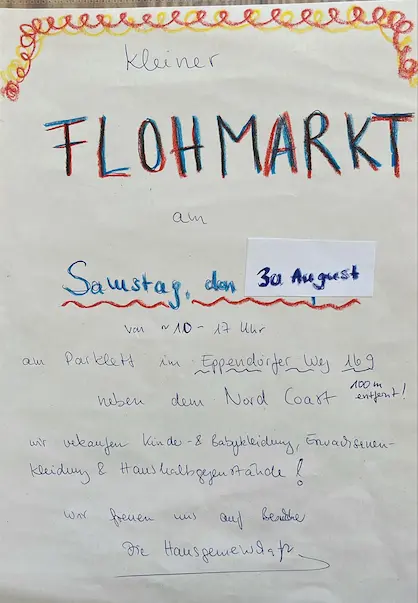 kleiner
FLOHMARKT
am
Samstag, den 30 August
von ~10 - 17 Uhr
am Parklett im Eppendorfer Weg 169
neben dem Nord Coast 100m entfernt!
wir verkaufen Kinder- & Babykleidung, Erwachsenen-
kleidung & Haushaltsgegenstände!
Wir freuen uns auf Besuche
Die Hausgemeinschaft